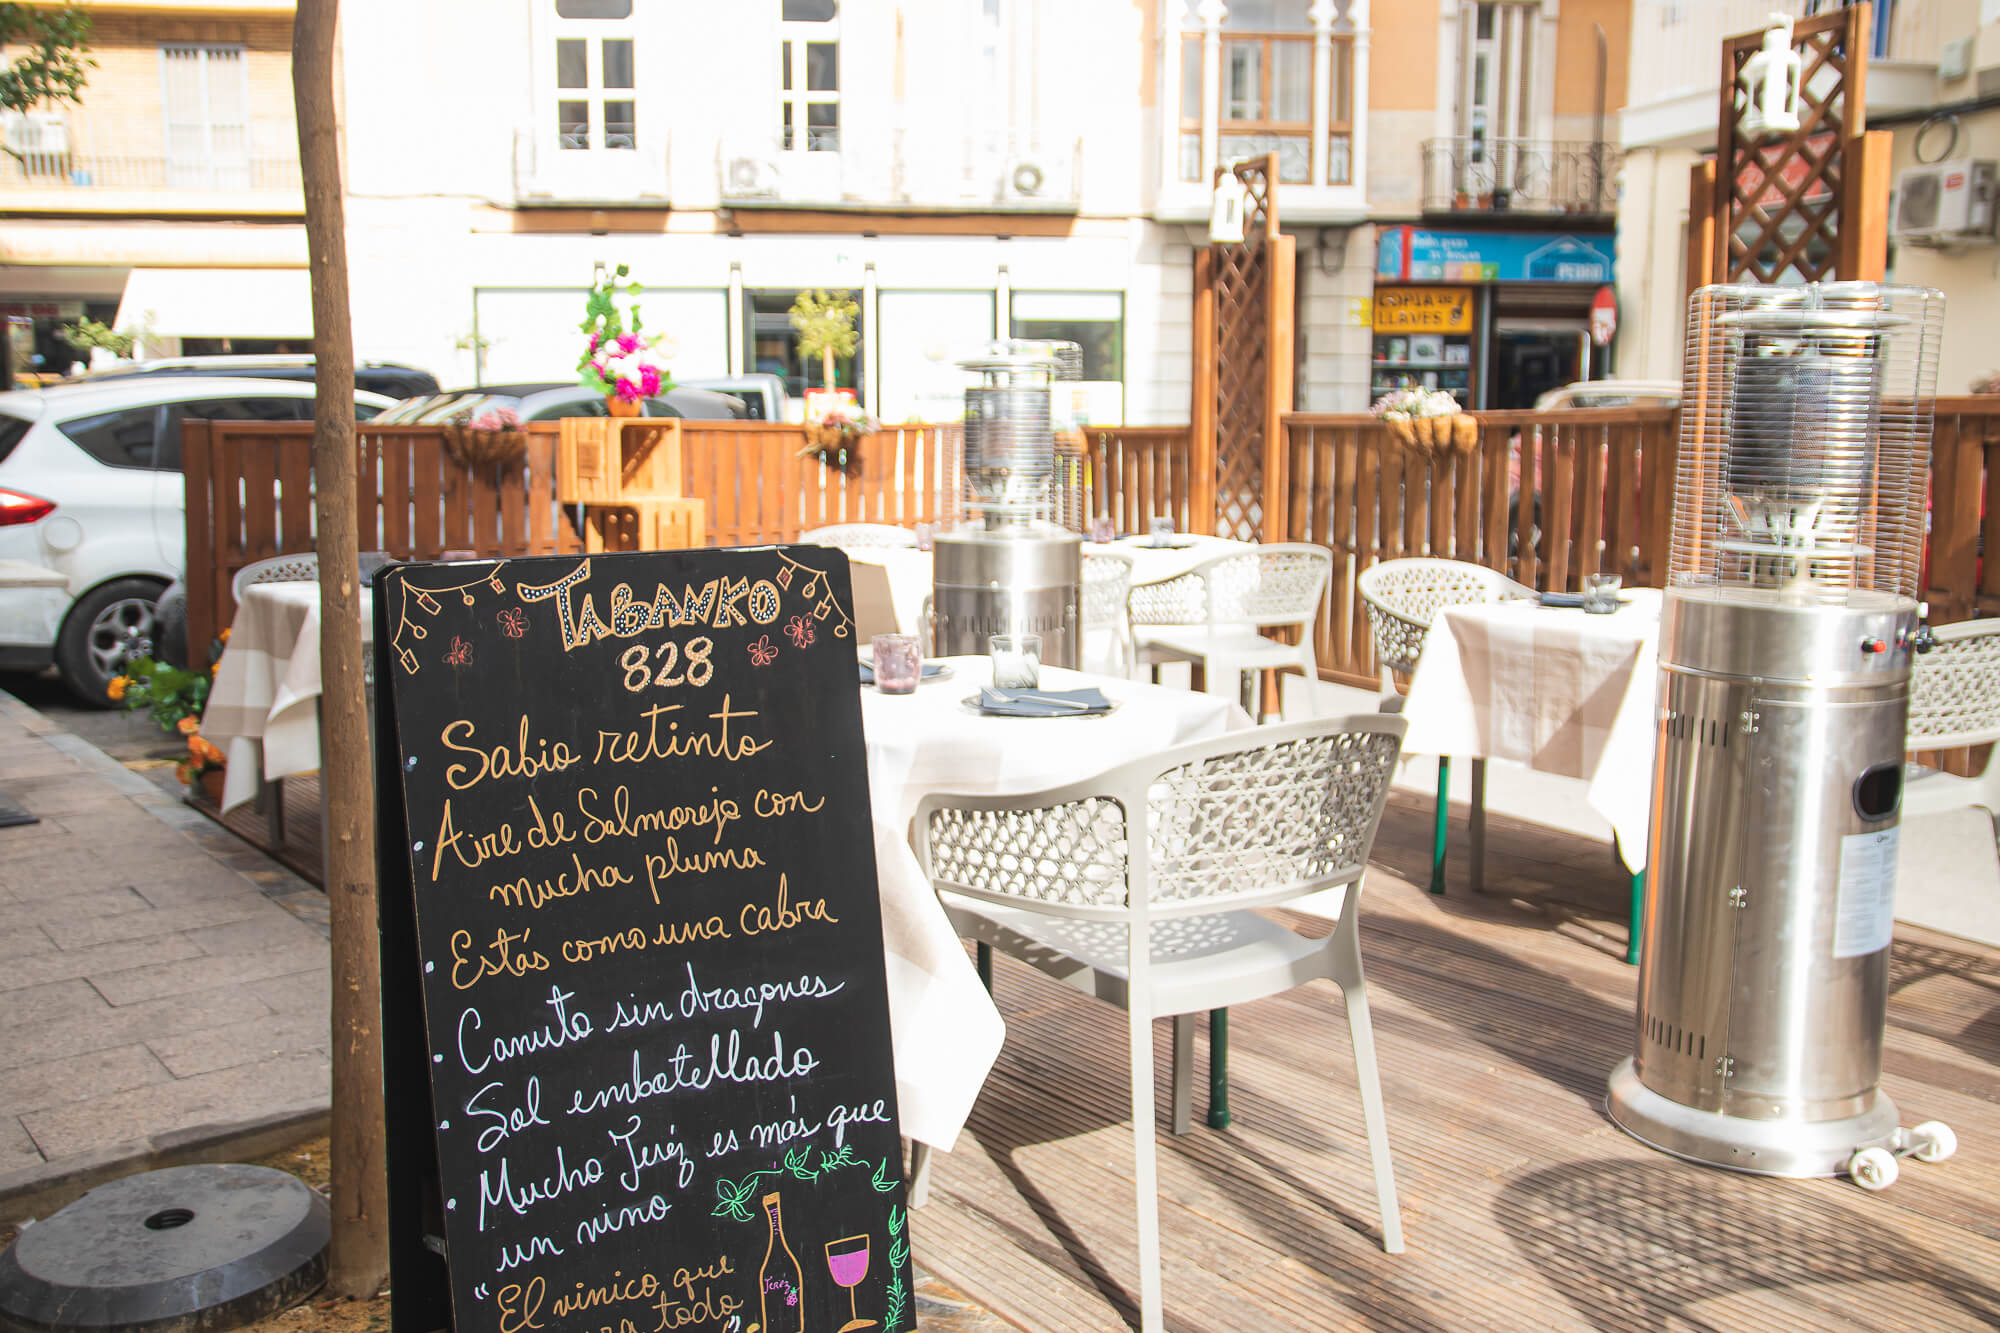 TABANKO
828
• Sabio retinto
• Aire de Salmorejo con
mucha pluma
• Estás como una cabra
• Canuto sin dragones
• Sol embotellado
• Mucho Jeréz es más que
un vino
"El vinico que
todo
Jeréz
COPIA DE
LLAVES
PEDRO